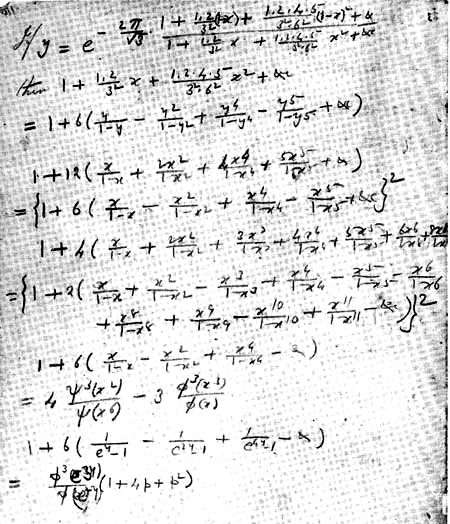 If y = e^{- 2π/√3 · (1 + 1.2/3² (1-x) + 1.2.4.5/3².6² (1-x)² + &c) / (1 + 1.2/3² x + 1.2.4.5/3².6² x² + &c)}
then 1 + 1.2/3² x + 1.2.4.5/3².6² x² + &c
= 1 + 6 (y/1-y - y²/1-y² + y⁴/1-y⁴ - y⁵/1-y⁵ + &c)
1 + 12 (x/1-x + 2x²/1-x² + 4x⁴/1-x⁴ + 5x⁵/1-x⁵ + &c)
= {1 + 6 (x/1-x - x²/1-x² + x⁴/1-x⁴ - x⁵/1-x⁵ + &c)}²
1 + 4 (x/1-x + 2x²/1-x² + 3x³/1-x³ + 4x⁴/1-x⁴ + 5x⁵/1-x⁵ + 6x⁶/1-x⁶ +
= {1 + 2 (x/1-x + x²/1-x² - x³/1-x³ + x⁴/1-x⁴ - x⁵/1-x⁵ - x⁶/1-x⁶
+ x⁸/1-x⁸ + x⁹/1-x⁹ - x¹⁰/1-x¹⁰ + x¹¹/1-x¹¹ - &c)}²
1 + 6 (x/1-x - x²/1-x² + x⁴/1-x⁴ - &c)
= 4 ψ³(x²)/ψ(x⁶) - 3 φ³(x³)/φ(x)
1 + 6 (1/e^y-1 - 1/e^{2y}-1 + 1/e^{4y}-1 - &c)
= (1 + 4p + p²)